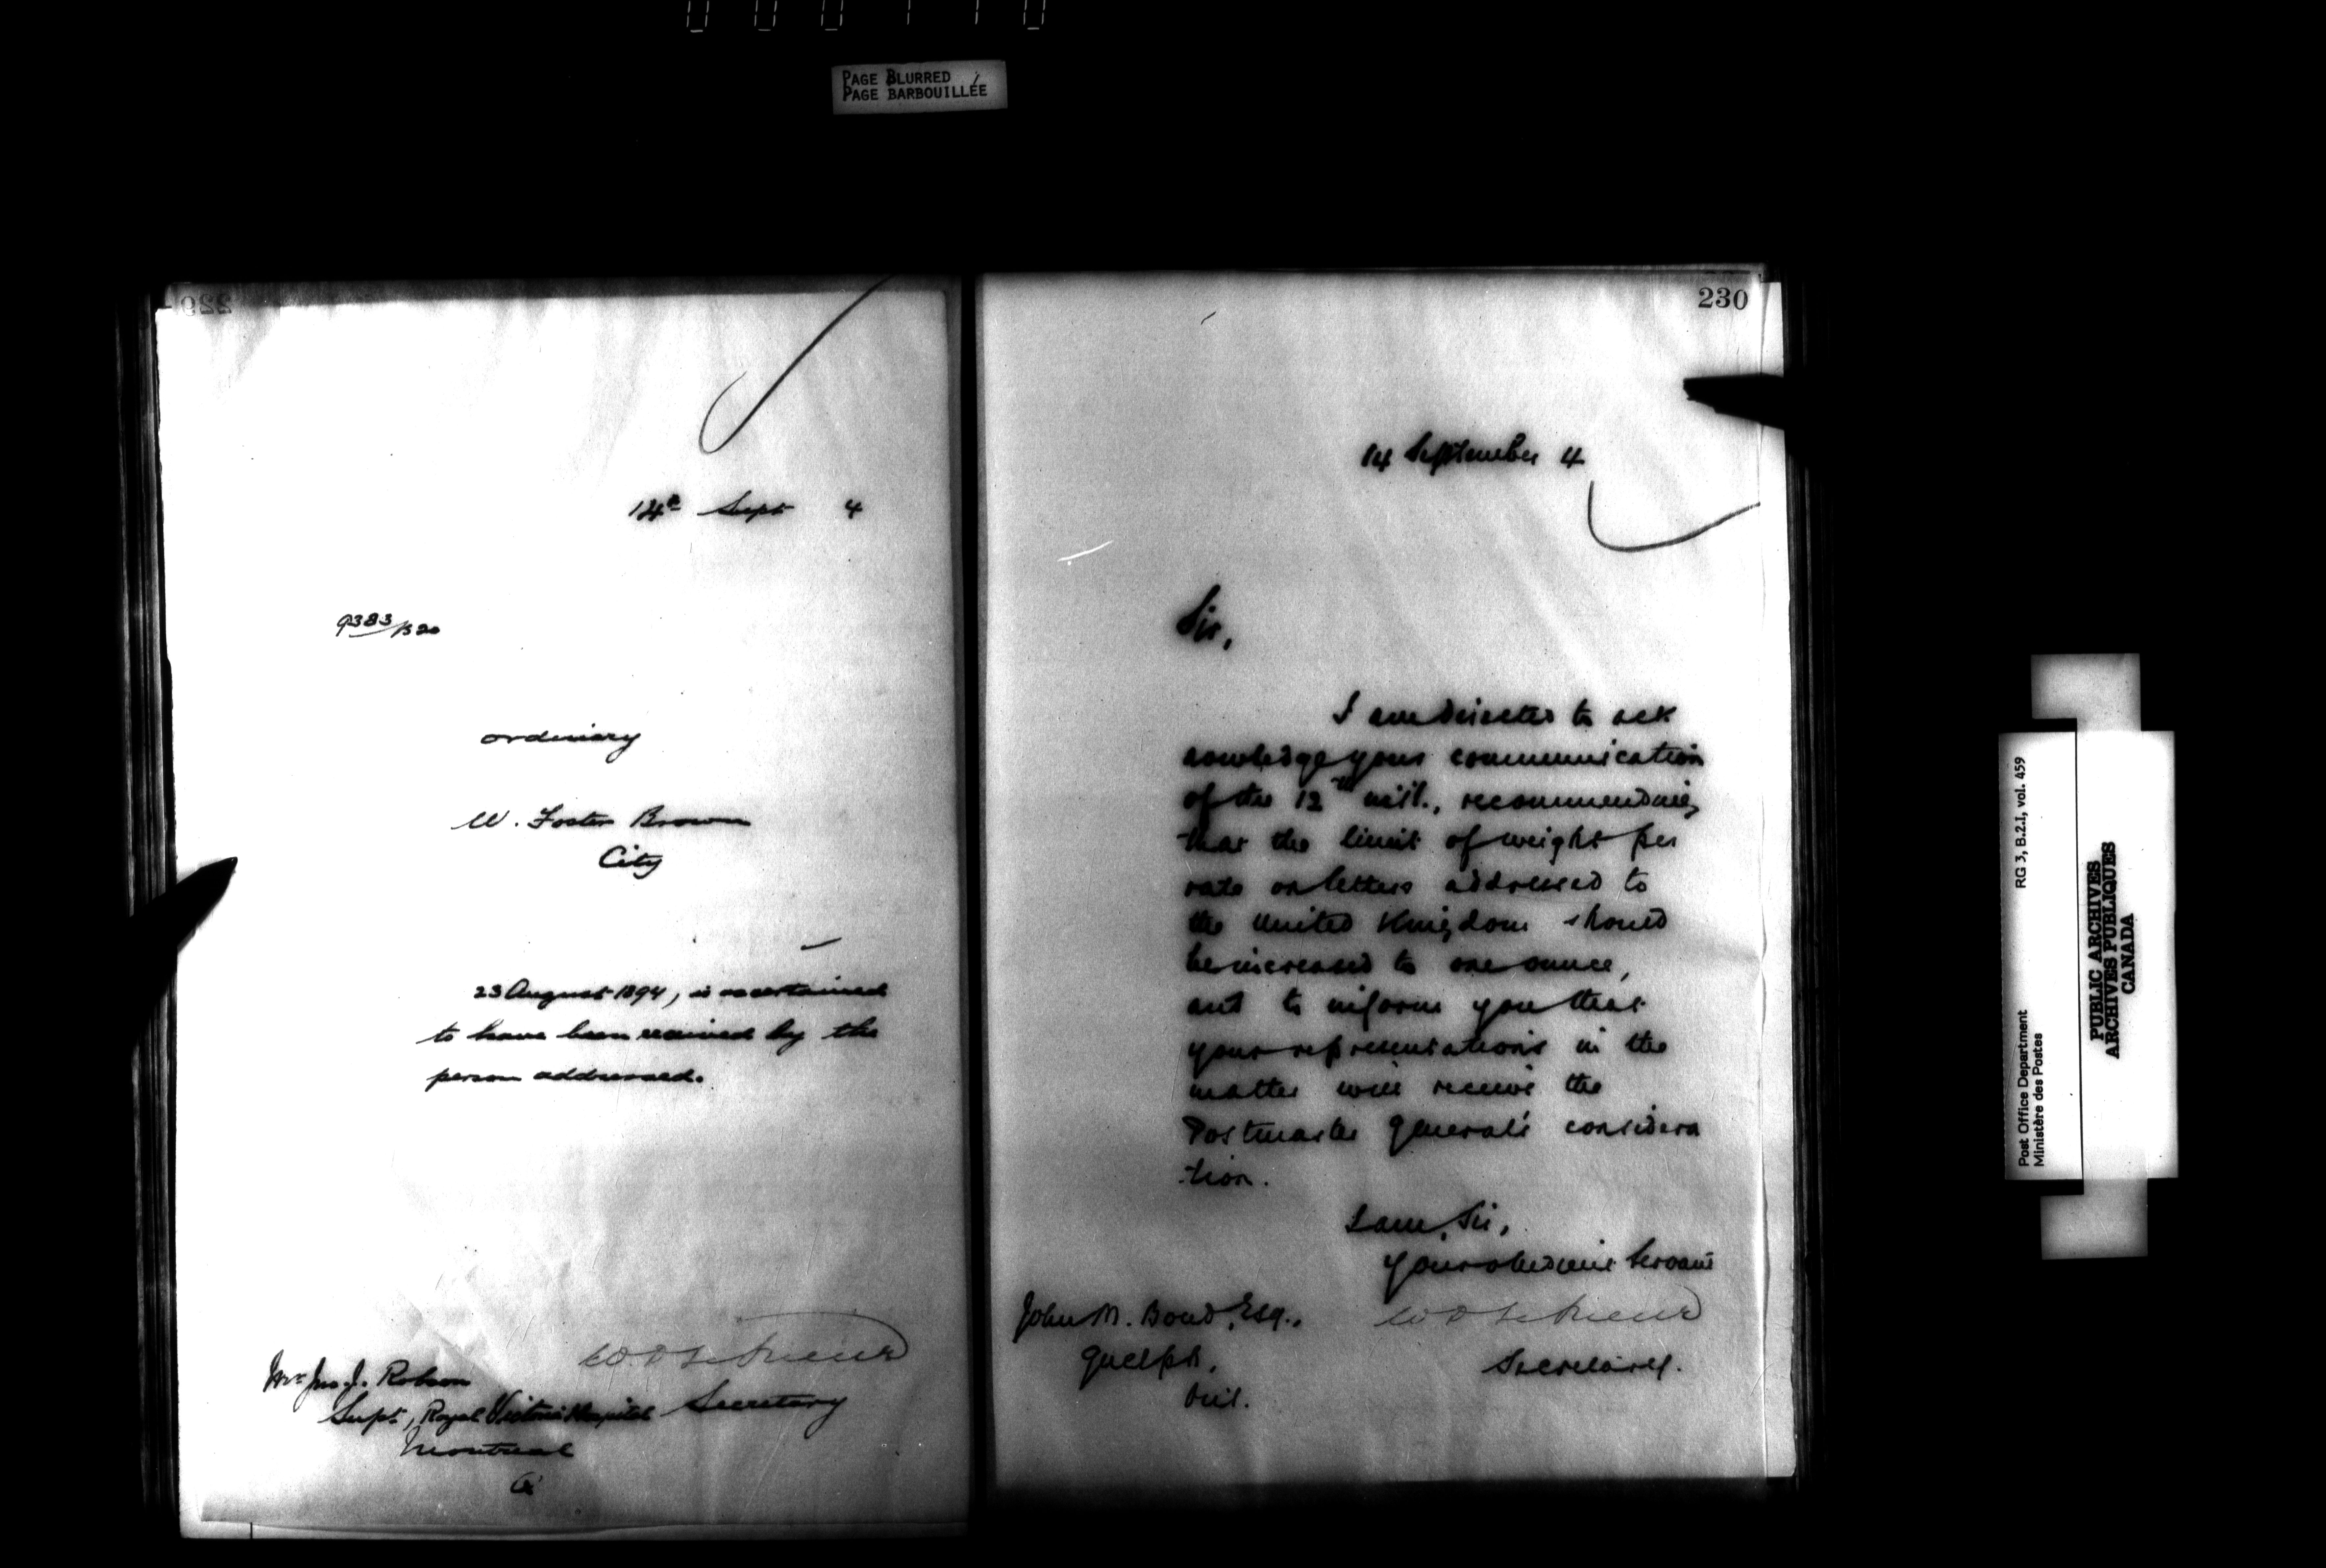 PAGE BLURRED
PAGE BARBOUILLÉE
229
14th Sept 4
9383/B20
ordinary
W. Foster Brown
City
23 August 1894, is ascertained
to have been received by the
person addressed.
Secretary
Mr Jno. J. Robson
Supt, Royal Victoria Hospital
Montreal
Q
230
14 September 4
Sir,
I am directed to ack
nowledge your communication
of the 12th inst., recommending
that the limit of weight per
rate on letters addressed to
the United Kingdom should
be increased to one ounce,
and to inform you that
your representations in the
matter will receive the
Postmaster General's considera
tion.
I am, Sir,
Your obedient Servant
Secretary.
John M. Bond, Esq.,
Guelph,
Ont.
Post Office Department
Ministère des Postes
RG 3, B.2.I, vol. 459
PUBLIC ARCHIVES
ARCHIVES PUBLIQUES
CANADA